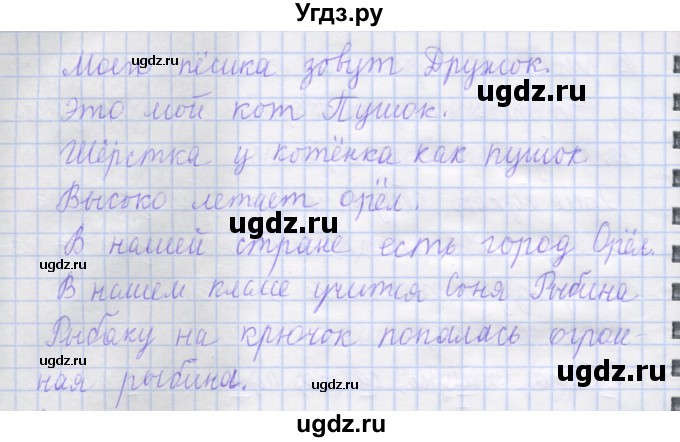 Угдз.ру
Моего пёсика зовут Дружок.
Это мой кот Пушок.
Шёрстка у котёнка как пушок
Высоко летает орёл.
В нашей стране есть город Орёл.
В нашем классе учится Соня Рыбина
Рыбаку на крючок попалась огром-
ная рыбина.
ugdz.ru
ugdz.ru
ugdz.ru
ugdz.ru
ugdz.ru
ugdz.ru
ugdz.ru
ugdz.ru
ugdz.ru